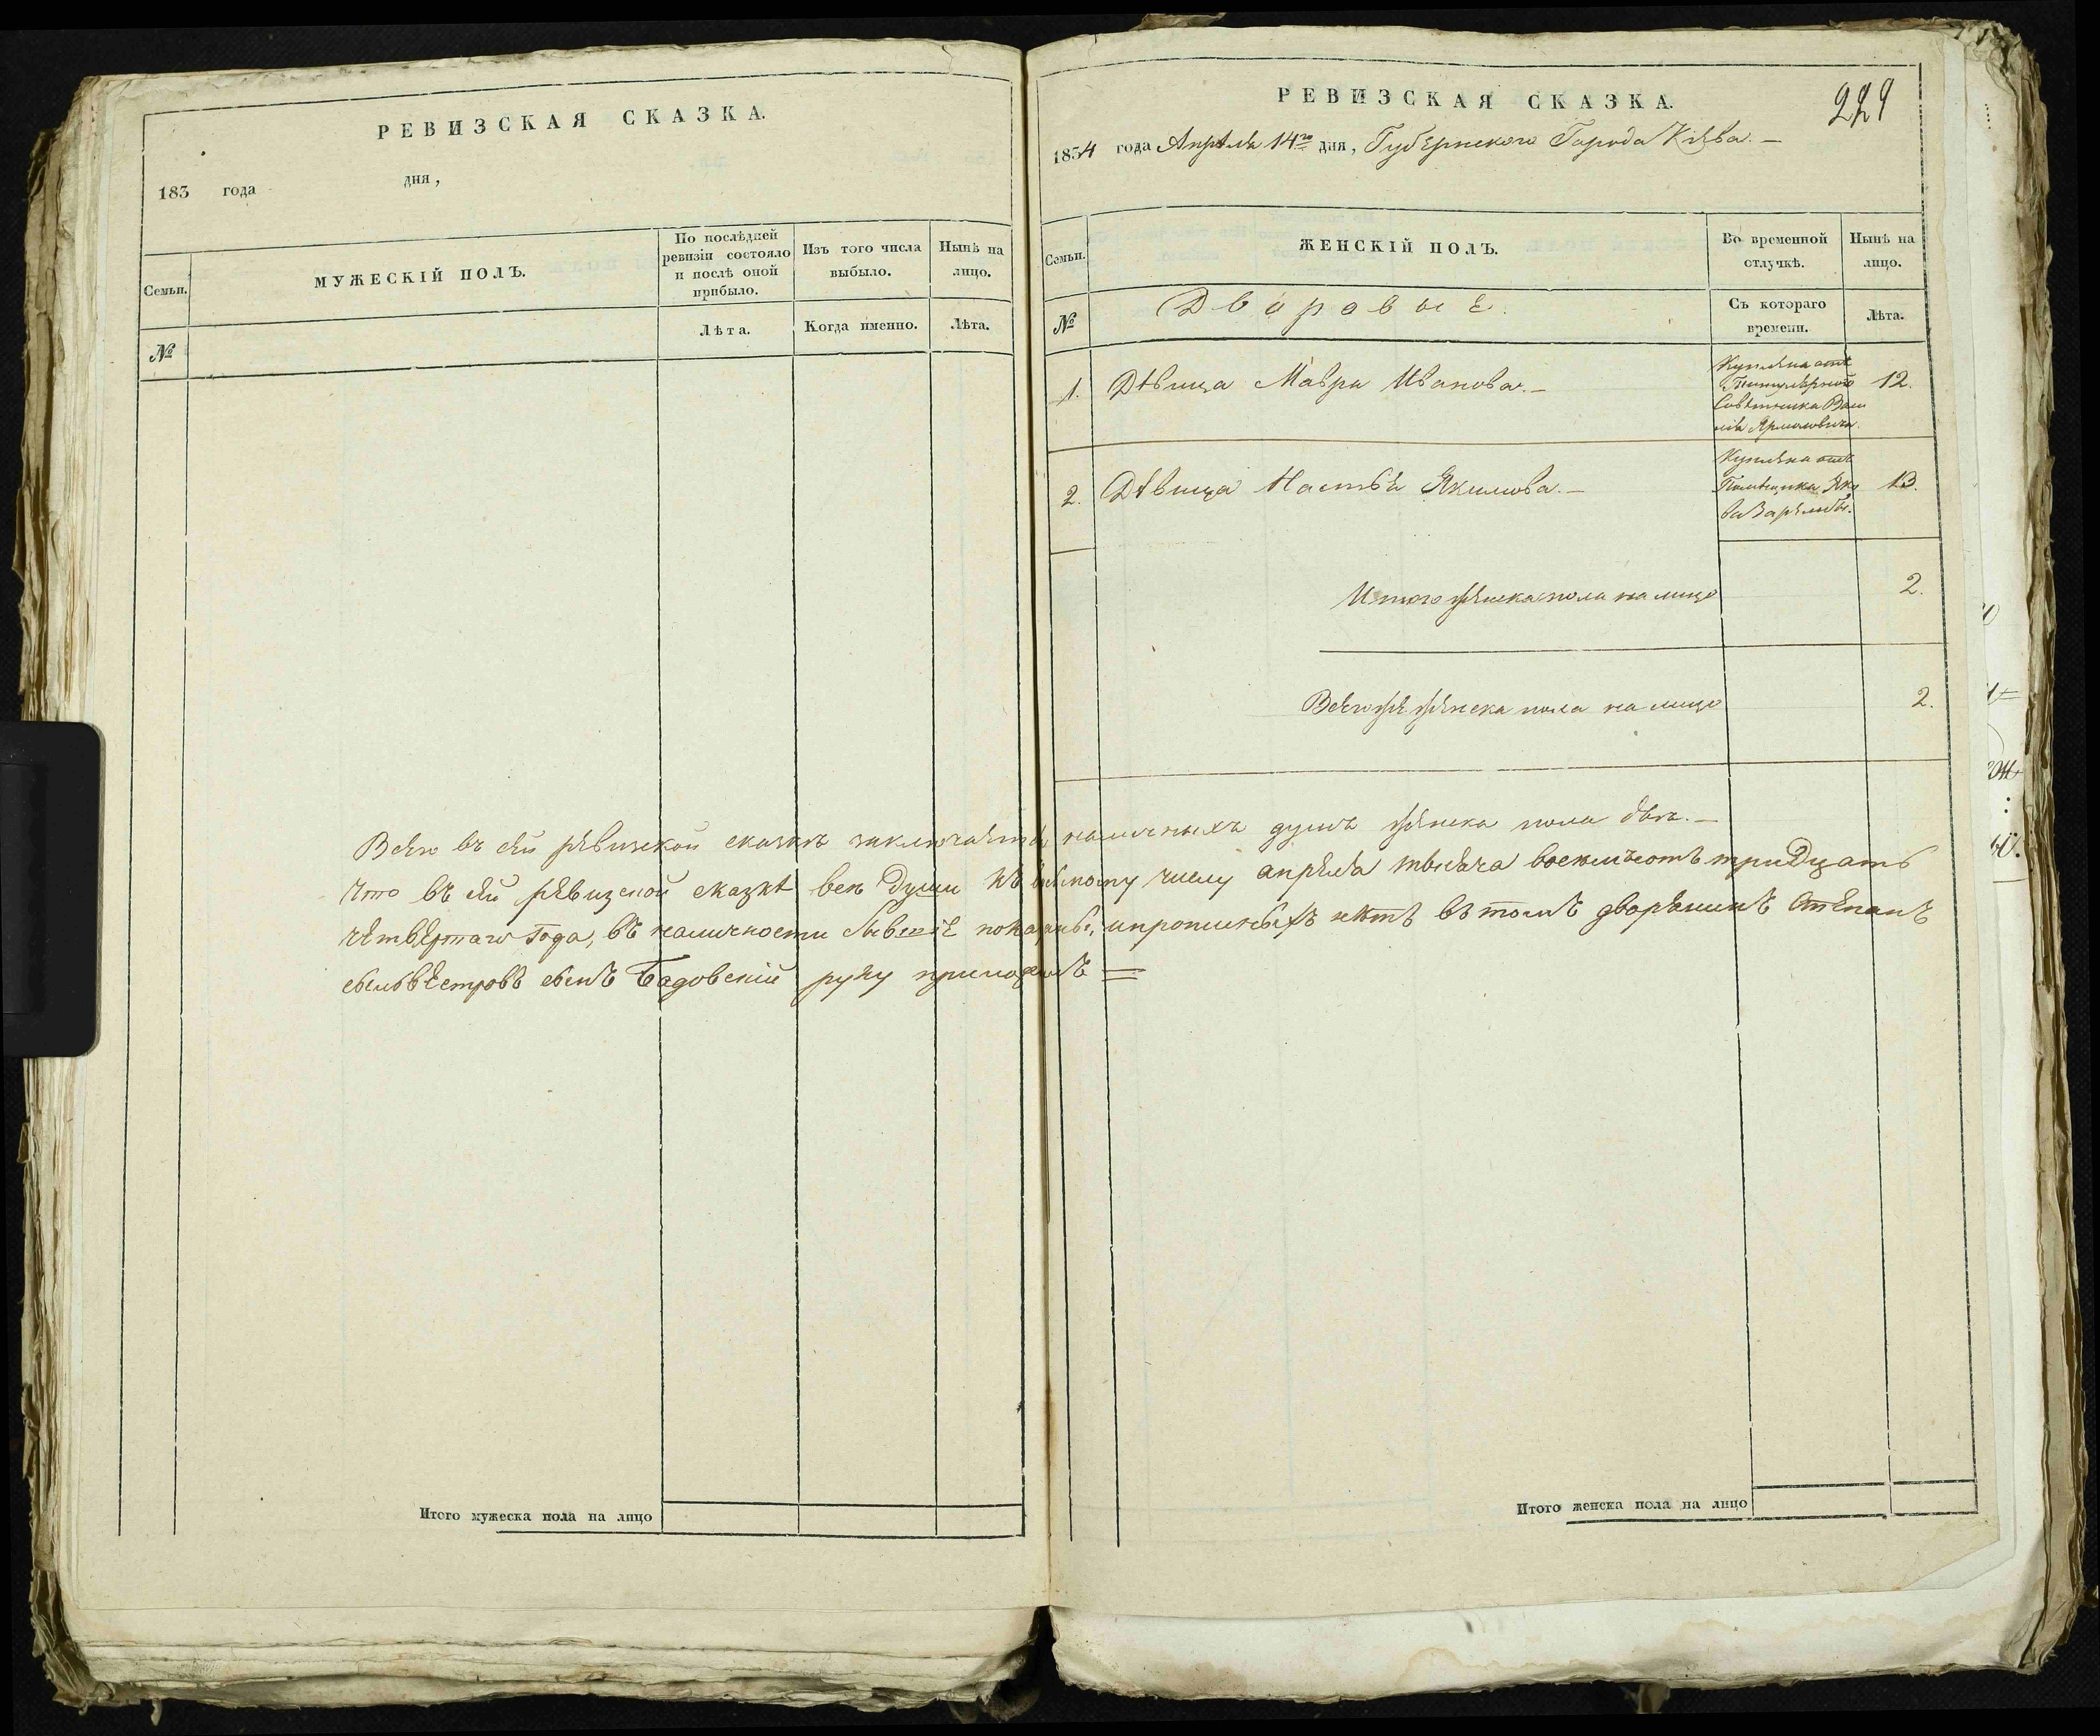 РЕВИЗСКАЯ СКАЗКА.
183 года дня,
Семьи.
МУЖЕСКІЙ ПОЛЪ.
По послѣдней
ревизіи состояло
и послѣ оной
прибыло.
Изъ того числа
выбыло.
Нынѣ на
лицо.
№
Лѣта.
Когда именно.
Лѣта.
229
РЕВИЗСКАЯ СКАЗКА.
1834 года Апрѣля 14го дня, Губернскаго Города Кіева.—
Семьи.
ЖЕНСКІЙ ПОЛЪ.
Во временной
отлучкѣ.
Нынѣ на
лицо.
№
Дворовые.
Съ котораго
времени.
Лѣта.
1. Дѣвица Мавра Иванова.— 12.
Куплена отъ
Титулярного
Совѣтника
2. Дѣвица Настья Якимова.— 13.
Куплена отъ
Помѣщика Яко
ва Зарембы.
Итого женска пола на лицо 2.
Всего же женска пола на лицо 2.
Всего въ сей ревизской сказкѣ заключается наличныхъ душъ женска пола двѣ.—
Что въ сей ревизской сказкѣ всѣ души къ числу апреля тысяча восемьсотъ тридцать
четвертаго Года, въ наличности показаны, и прописныхъ нѣтъ въ томъ дворенинъ Степанъ
сильвестровъ сынъ Бадовскій руку приложилъ =
Итого мужеска пола на лицо
Итого женска пола на лицо